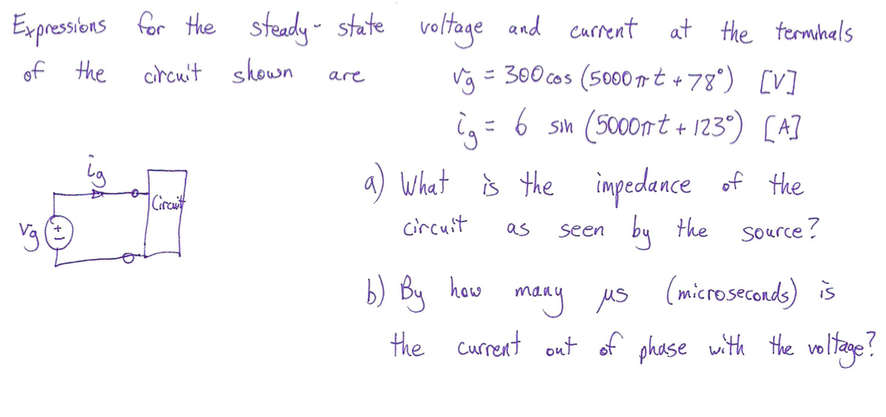 Expressions for the steady-state voltage and current at the terminals
of the circuit shown are vg = 300cos (5000πt + 78°) [V]
ig = 6 sin (5000πt + 123°) [A]
ig
Circuit
vg
+
-
a) What is the impedance of the
circuit as seen by the source?
b) By how many µs (microseconds) is
the current out of phase with the voltage?